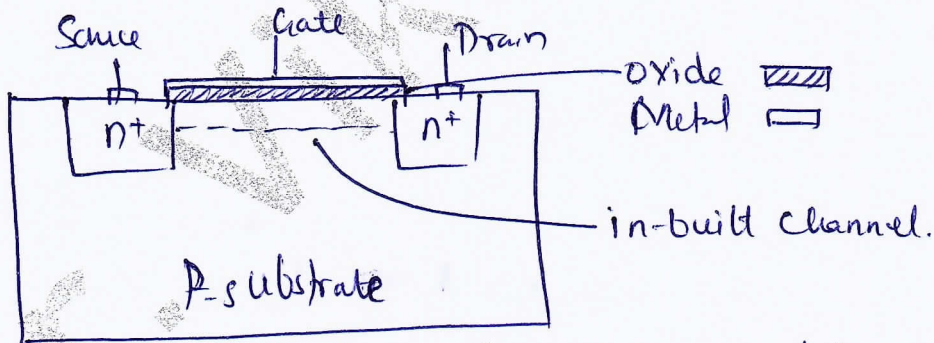 Source
Gate
Drain
oxide
Metal
n+
n+
in-built channel.
P-substrate